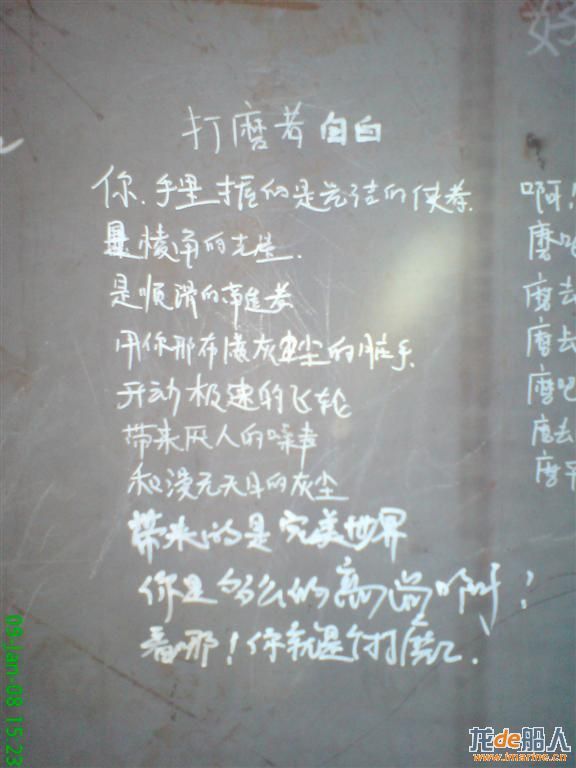 打磨者自白
你、手里握的是光洁的使者
是棱角的克星
是顺滑的制造者
用你那布满灰尘的脏手
开动极速的飞轮
带来灰人的噪声
和漫无天日的灰尘
带来的是完美世界
你是多么的高尚啊！
看那！你就是个打磨工.
好
啊！
磨吧
磨去
磨去
磨吧
磨去
磨平
08-Jan-08 15:23
龙de船人
www.imarine.cn